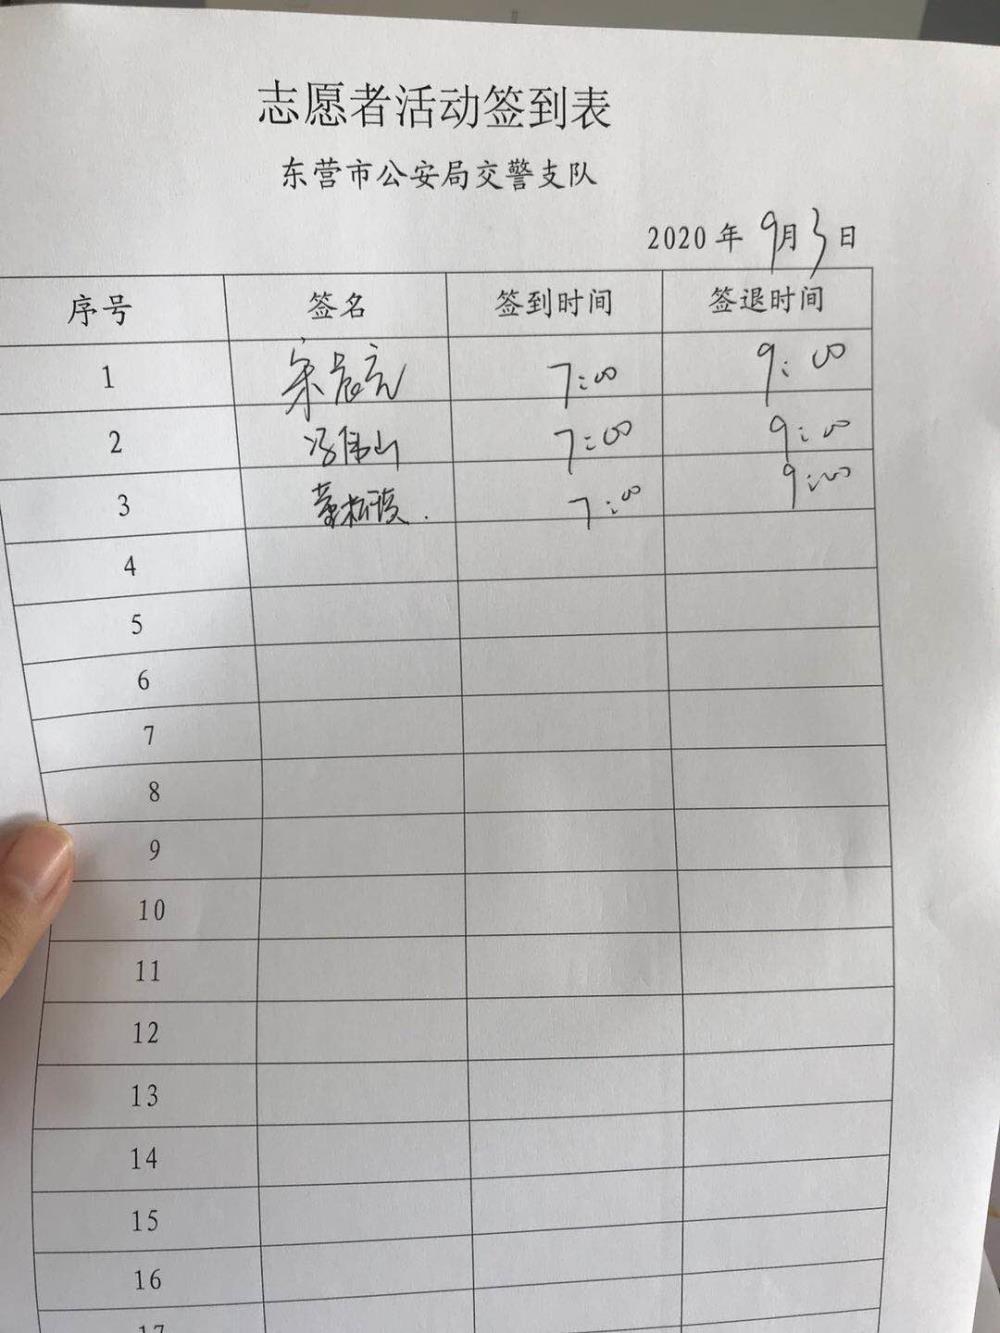 志愿者活动签到表
东营市公安局交警支队
2020 年 9月3日
序号 签名 签到时间 签退时间
1 7:00 9:00
2 冯伟山 7:00 9:00
3 7:00 9:00
4
5
6
7
8
9
10
11
12
13
14
15
16
17